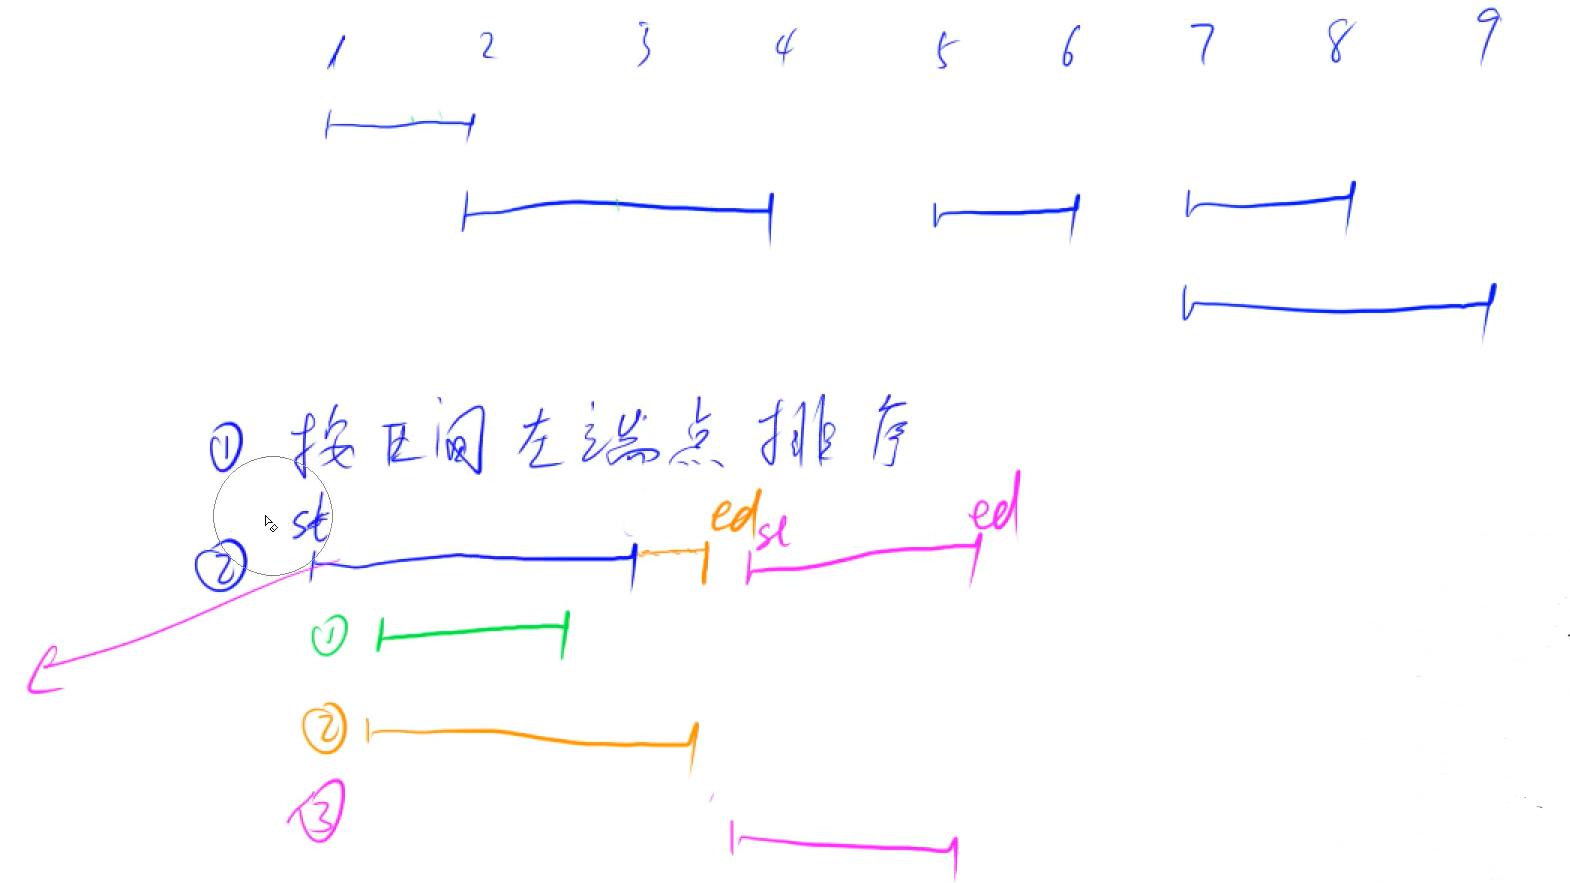 1 2 3 4 5 6 7 8 9
① 按区间左端点排序
st ed st ed
②
①
②
③